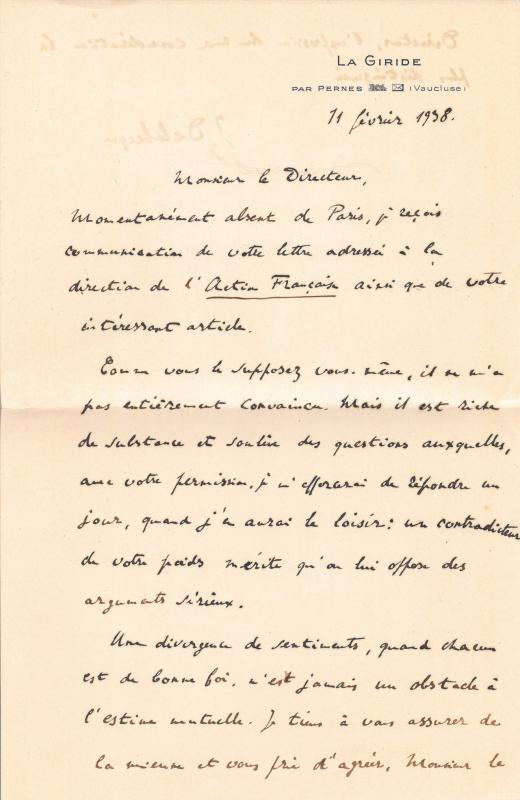 LA GIRIDE
PAR PERNES (Vaucluse)
11 février 1938.
Monsieur le Directeur,
Momentanément absent de Paris, je reçois
communication de votre lettre adressée à la
direction de l'Action Française ainsi que de votre
intéressant article.
Comme vous le supposez vous-même, il ne m'a
pas entièrement convaincu. Mais il est riche
de substance et soulève des questions auxquelles,
avec votre permission, je m'efforcerai de répondre un
jour, quand j'en aurai le loisir : un contradicteur
de votre poids mérite qu'on lui oppose des
arguments sérieux.
Une divergence de sentiments, quand chacun
est de bonne foi, n'est jamais un obstacle à
l'estime mutuelle. Je tiens à vous assurer de
la mienne et vous prie d'agréer, Monsieur le